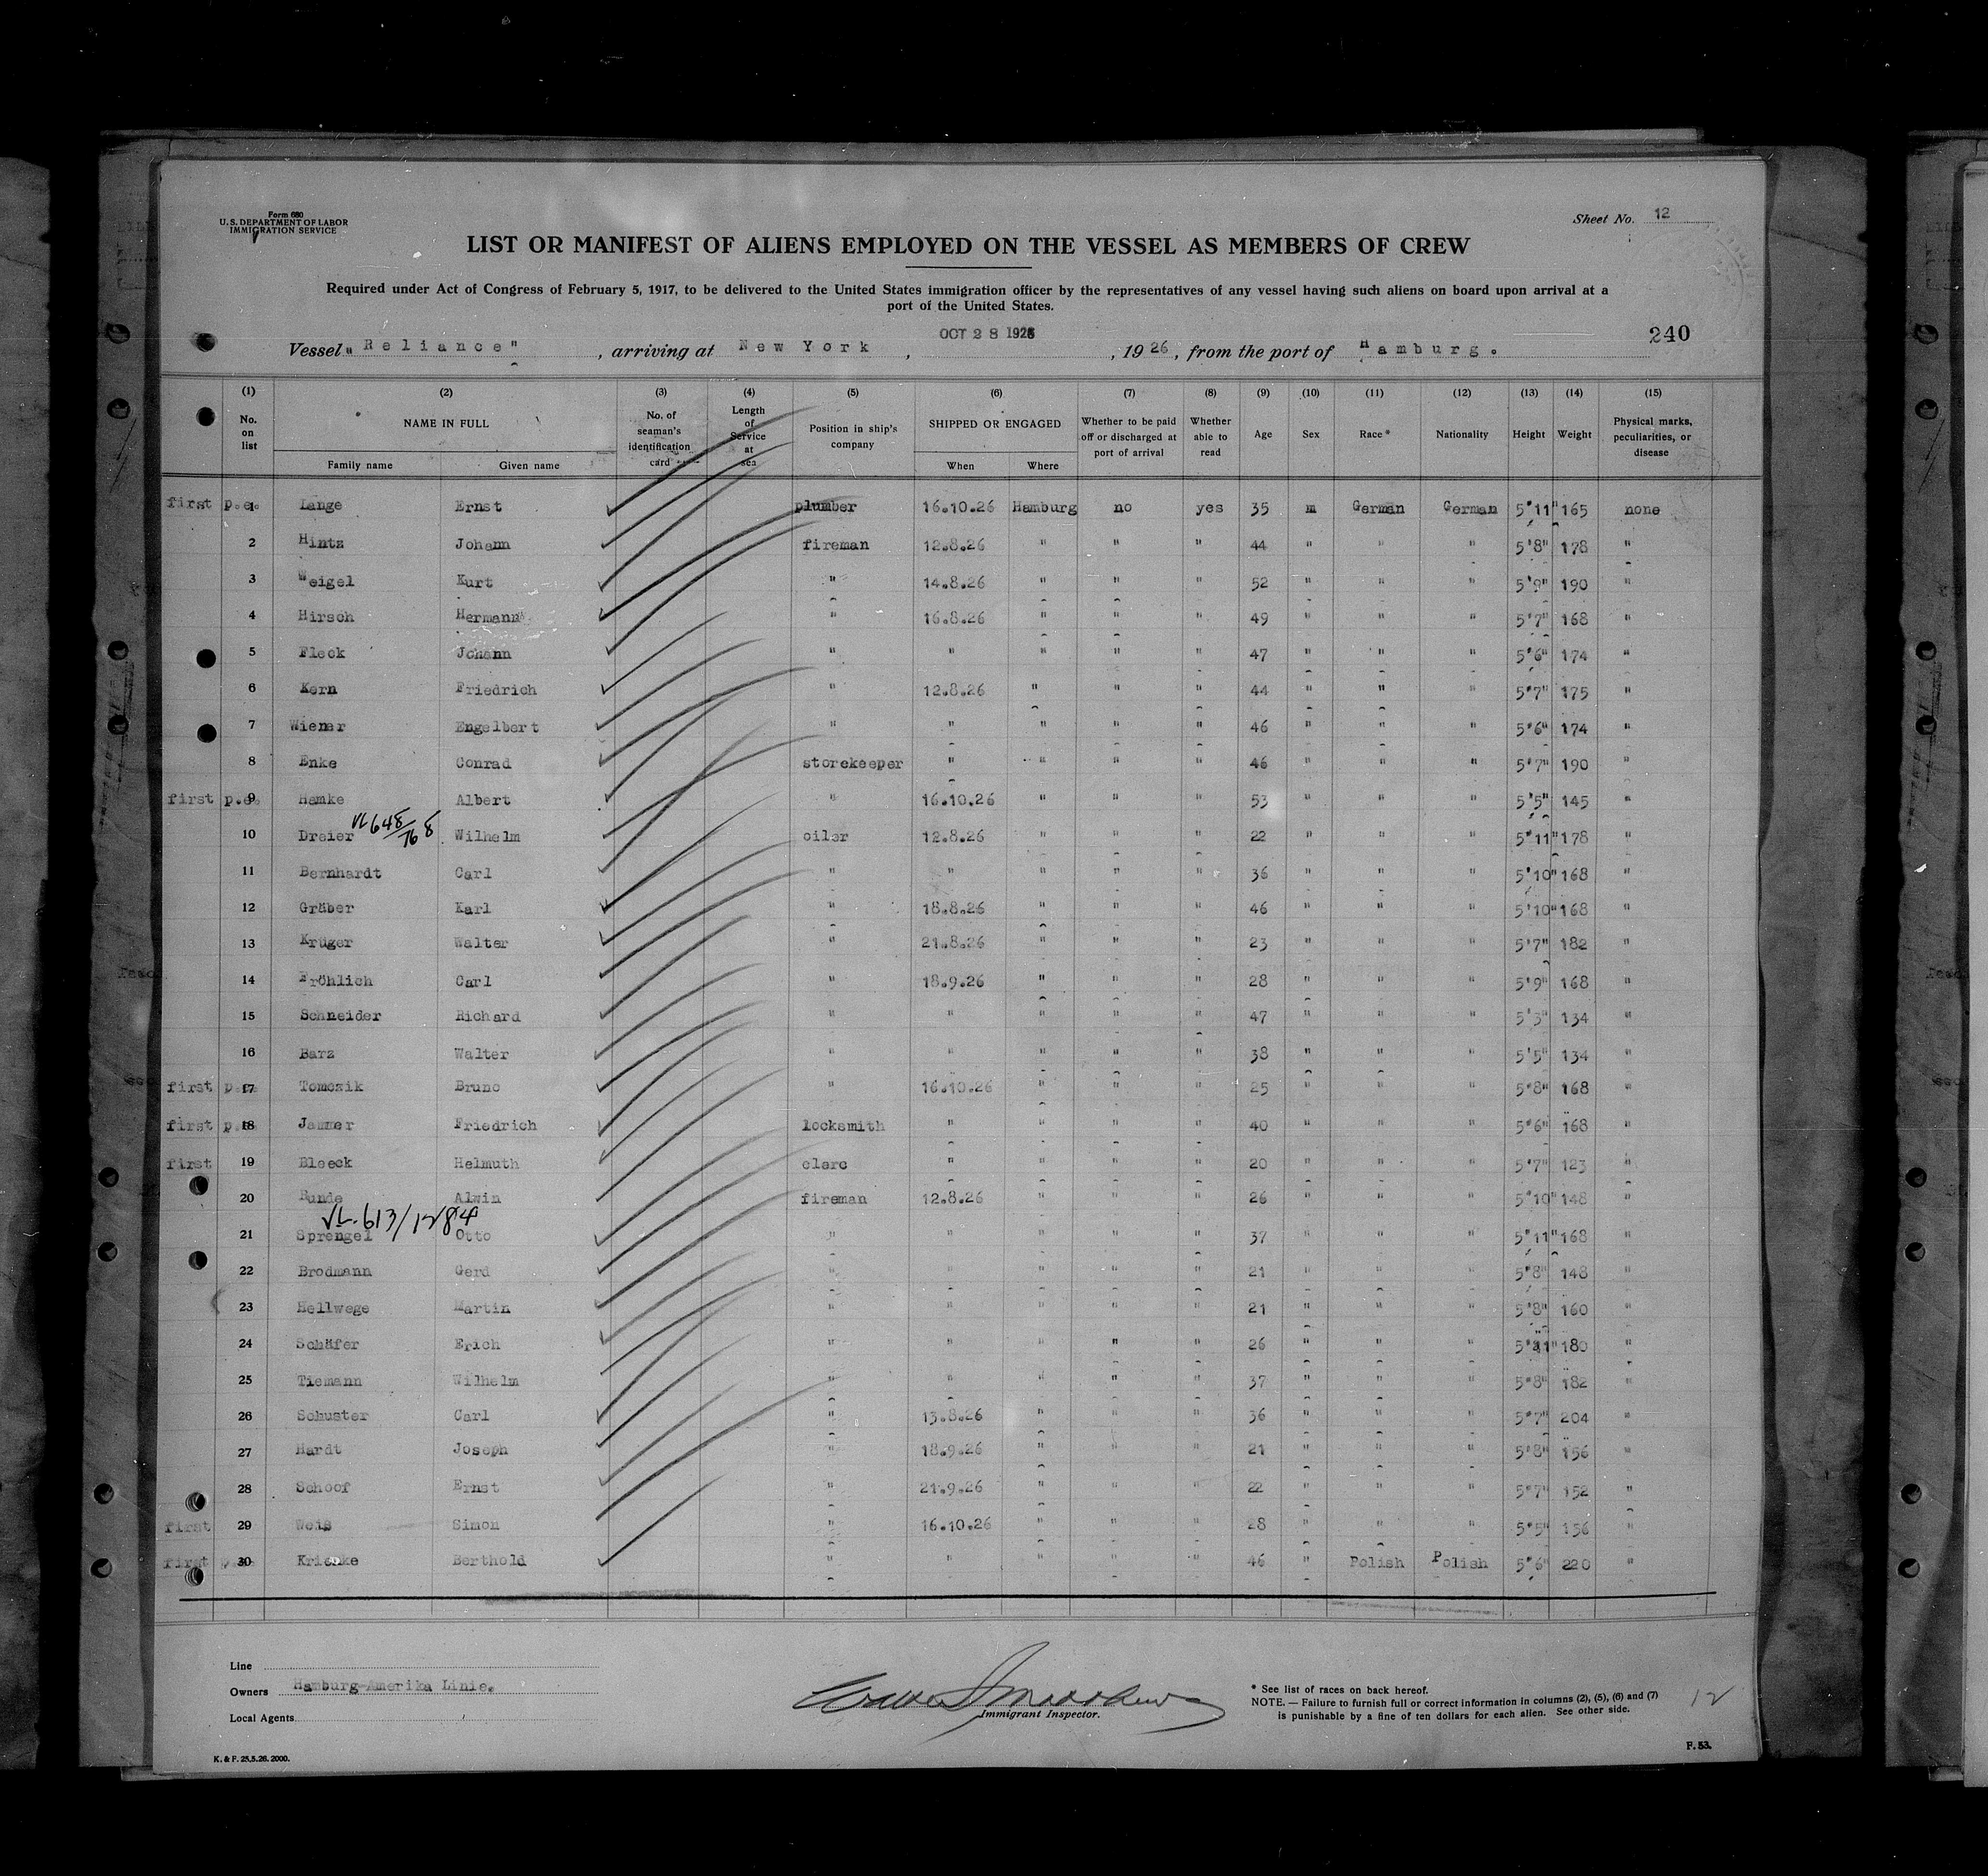 Form 680
U. S. DEPARTMENT OF LABOR
IMMIGRATION SERVICE
Sheet No. 12
LIST OR MANIFEST OF ALIENS EMPLOYED ON THE VESSEL AS MEMBERS OF CREW
Required under Act of Congress of February 5, 1917, to be delivered to the United States immigration officer by the representatives of any vessel having such aliens on board upon arrival at a
port of the United States.
OCT 28 1926
240
Vessel "Reliance", arriving at New York, , 1926, from the port of Hamburg.
(1) (2) (3) (4) (5) (6) (7) (8) (9) (10) (11) (12) (13) (14) (15)
No. on list NAME IN FULL Family name Given name No. of seaman's identification card Length of Service at sea Position in ship's company SHIPPED OR ENGAGED When Where Whether to be paid off or discharged at port of arrival Whether able to read Age Sex Race* Nationality Height Weight Physical marks, peculiarities, or disease
first p.e. 1 Lange Ernst plumber 16.10.26 Hamburg no yes 35 m German German 5'11" 165 none
2 Hintz Johann fireman 12.8.26 " " " 44 " " " 5'8" 178 "
3 Weigel Kurt " 14.8.26 " " " 52 " " " 5'9" 190 "
4 Hirsch Hermann " 16.8.26 " " " 49 " " " 5'7" 168 "
5 Fleck Johann " " " " " 47 " " " 5'6" 174 "
6 Kern Friedrich " 12.8.26 " " " 44 " " " 5'7" 175 "
7 Wiener Engelbert " " " " " 46 " " " 5'6" 174 "
8 Enke Conrad storekeeper " " " " 46 " " " 5'7" 190 "
first p.e. 9 Hamke Albert " 16.10.26 " " " 53 " " " 5'5" 145 "
10 Dreier VL 648/768 Wilhelm oiler 12.8.26 " " " 22 " " " 5'11" 178 "
11 Bernhardt Carl " " " " " 36 " " " 5'10" 168 "
12 Gräber Karl " 18.8.26 " " " 46 " " " 5'10" 168 "
13 Krüger Walter " 21.8.26 " " " 23 " " " 5'7" 182 "
14 Fröhlich Carl " 18.9.26 " " " 28 " " " 5'9" 168 "
15 Schneider Richard " " " " " 47 " " " 5'3" 134 "
16 Barz Walter " " " " " 38 " " " 5'5" 134 "
first p.e. 17 Tomczik Bruno " 16.10.26 " " " 25 " " " 5'8" 168 "
first p.e. 18 Jammer Friedrich locksmith " " " " 40 " " " 5'6" 168 "
first 19 Bleeck Helmuth clerc " " " " 20 " " " 5'7" 123 "
20 Runde Alwin fireman 12.8.26 " " " 26 " " " 5'10" 148 "
VL.613/1284
21 Sprengel Otto " " " " " 37 " " " 5'11" 168 "
22 Brodmann Gerd " " " " " 21 " " " 5'8" 148 "
23 Hellwege Martin " " " " " 21 " " " 5'8" 160 "
24 Schäfer Erich " " " " " 26 " " " 5'11" 180 "
25 Tiemann Wilhelm " " " " " 37 " " " 5'8" 182 "
26 Schuster Carl " 13.8.26 " " " 36 " " " 5'7" 204 "
27 Hardt Joseph " 18.9.26 " " " 21 " " " 5'8" 156 "
28 Schoof Ernst " 21.9.26 " " " 22 " " " 5'7" 152 "
first 29 Weiß Simon " 16.10.26 " " " 28 " " " 5'5" 156 "
first p.e. 30 Berthold " " " " " 46 " Polish Polish 5'6" 220 "
Line
Owners Hamburg-Amerika Linie.
Local Agents
Immigrant Inspector.
* See list of races on back hereof.
NOTE. — Failure to furnish full or correct information in columns (2), (5), (6) and (7)
is punishable by a fine of ten dollars for each alien. See other side.
12
K. & F. 25.5.26. 2000.
F. 53.